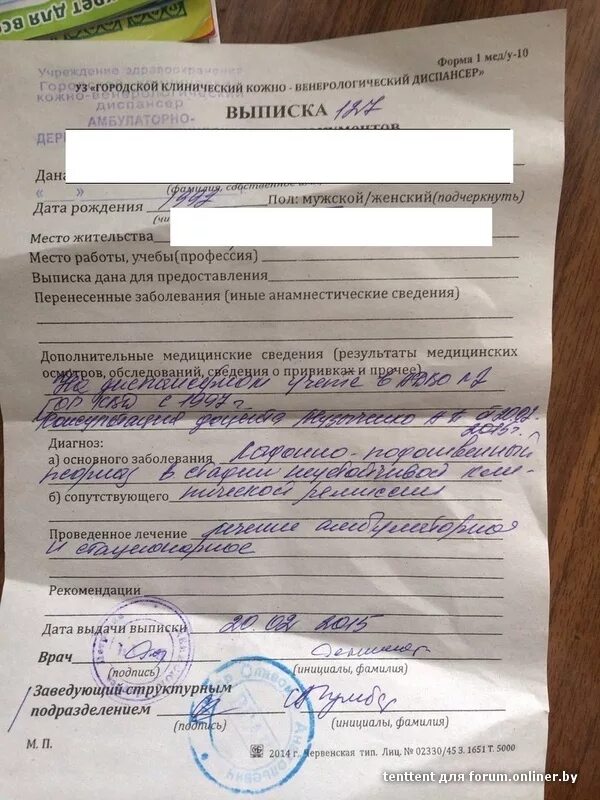 КРЕТ ДЛЯ ВСЕ
Форма 1 мед/у-10
Учреждение здравоохранения
УЗ «ГОРОДСКОЙ КЛИНИЧЕСКИЙ КОЖНО - ВЕНЕРОЛОГИЧЕСКИЙ ДИСПАНСЕР»
кожно-венерологический
диспансер
ВЫПИСКА 127
АМБУЛАТОРНО-
Дана
(фамилия, собственное
Дата рождения 1997 Пол: мужской/женский(подчеркнуть)
Место жительства
Место работы, учебы(профессия)
Выписка дана для предоставления
Перенесенные заболевания (иные анамнестические сведения)
Дополнительные медицинские сведения (результаты медицинских
осмотров, обследований, сведения о прививках и прочее)
На диспансерном учете в
ГОР КВД с 1997г
Консультация доцента 20.02.
2015г.
Диагноз:
а) основного заболевания Ладонно-подошвенный
псориаз в стадии неустойчивой кли-
б) сопутствующего нической ремиссии
Проведенное лечение лечение амбулаторное
и стационарное
Рекомендации
Дата выдачи выписки 20.02 2015
Врач
(подпись) (инициалы, фамилия)
Заведующий структурным
подразделением
(подпись) (инициалы, фамилия)
М. П.
2014 г. Червенская тип. Лиц. № 02330/45 З. 1651 Т. 5000
tenttent для forum.onliner.by